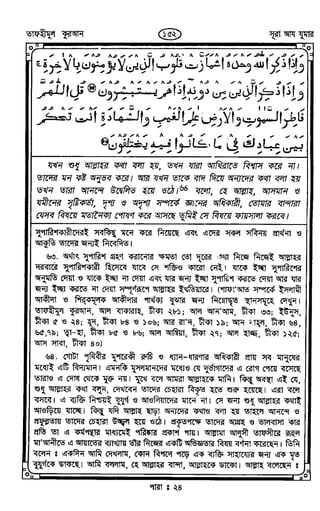 তাফহীমুল কুরআন
১৫২
সূরা আয যুমার
وَإِذَا ذُكِرَ اللهُ وَحْدَهُ اشْمَأَزَّتْ قُلُوبُ الَّذِينَ لَا يُؤْمِنُونَ بِالْآخِرَةِ ۚ
وَإِذَا ذُكِرَ الَّذِينَ مِنْ دُونِهِ إِذَا هُمْ يَسْتَبْشِرُونَ ۝ قُلِ اللَّهُمَّ
فَاطِرَ السَّمٰوٰتِ وَالْأَرْضِ عٰلِمَ الْغَيْبِ وَالشَّهَادَةِ أَنْتَ تَحْكُمُ
بَيْنَ عِبَادِكَ فِي مَا كَانُوا فِيهِ يَخْتَلِفُونَ ۝
যখন শুধু আল্লাহর কথা বলা হয়, তখন যারা আখিরাতে বিশ্বাস করে না।
তাদের মন কষ্ট অনুভব করে। আর যখন তাকে বাদ দিয়ে অন্যদের কথা বলা হয়
তখন তারা আনন্দে উদ্বেলিত হয়ে ওঠে।৬৪ বলো, হে আল্লাহ, আসমান ও
যমীনের সৃষ্টিকর্তা, দৃশ্য ও অদৃশ্য সম্পর্কে জ্ঞানের অধিকারী, তোমার বান্দারা
যেসব বিষয়ে মতানৈক্য পোষণ করে আসছে তুমিই সে বিষয়ে ফায়সালা করবে।
সুপারিশকারীদেরই সবকিছু মনে করে নিয়েছে এবং এদের সকল সবিনয় প্রার্থনা ও
আকুতি তাদের জন্যই নিবেদিত।
৬৩. অর্থাৎ সুপারিশ গ্রহণ করানোর ক্ষমতা তো দূরের কথা নিজে নিজেই আল্লাহর
দরবারে সুপারিশকারী হিসেবে যাবে সে শক্তিও কারো নেই। যাকে ইচ্ছা সুপারিশের
অনুমতি দেয়া ও যাকে ইচ্ছা না দেয়া এবং যার জন্য ইচ্ছা সুপারিশ করতে দেয়া আর যার
জন্য ইচ্ছা করতে না দেয়া সম্পূর্ণরূপে আল্লাহর ইখতিয়ারে। (শাফা'আত সম্পর্কে ইসলামী
আকীদা ও শিরকমূলক আকীদার পার্থক্য বুঝার জন্য নিম্নোদ্ধৃত স্থানসমূহে দেখুন।
তাফহীমুল কুরআন, আল বাকারাহ, টীকা ২৮১; আল আন'আম, টীকা ৩৩; ইউনুস,
টীকা ৫ ও ২৪; হূদ, টীকা ৮৪ ও ১০৬; আর রা'দ, টীকা ১৯; আন নাহল, টীকা ৬৪,
৬৫,৭৯; ত্বা-হা, টীকা ৮৫ ও ৮৬; আল আম্বিয়া, টীকা ২৭; আল হাজ্জ, টীকা ১২৫;
আস সাবা, টীকা ৪০)
৬৪. গোটা পৃথিবীর মুশরেকী রুচি ও ধ্যান-ধারণার অধিকারী প্রায় সব মানুষের
মধ্যেই এটি বিদ্যমান। এমনকি মুসলমানদের মধ্যেও যে দুর্ভাগাদের এ রোগে পেয়ে বসেছে
তারাও এ দোষ থেকে মুক্ত নয়। মুখে বলে আমরা আল্লাহকে মানি। কিন্তু অবস্থা এই যে,
শুধু আল্লাহর কথা বলুন, দেখবেন তাদের চেহারা বিকৃত হতে শুরু হয়েছে। এরা বলে
বসবে। এ ব্যক্তি নিশ্চয়ই বুযুর্গ ও আওলিয়াদের মানে না। সে জন্য শুধু আল্লাহর কথাই
আওড়িয়ে যাচ্ছে। কিন্তু যদি আল্লাহ ছাড়া অন্যদের কথাও বলা হয় তাহলে আনন্দে ও
প্রফুল্লতায় তাদের চেহারা উজ্জ্বল হয়ে ওঠে। প্রকৃতপক্ষে তাদের আগ্রহ ও ভালবাসা কার
প্রতি তা এ কর্মপন্থার মাধ্যমেই পরিষ্কার প্রকাশ পায়। আল্লামা আলূসী তাফসীরে রূহুল
মা'আনীতে এ আয়াতের ব্যাখ্যায় তাঁর নিজের একটি অভিজ্ঞতার বিষয় বর্ণনা করেছেন। তিনি
বলেন : একদিন আমি দেখলাম, কোন বিপদে পড়ে এক ব্যক্তি সাহায্যের জন্য এক মৃত
বুযুর্গকে ডাকছে। আমি বললাম, হে আল্লাহর বান্দা, আল্লাহকে ডাকো। আল্লাহ বলেছেন :
পারা : ২৪